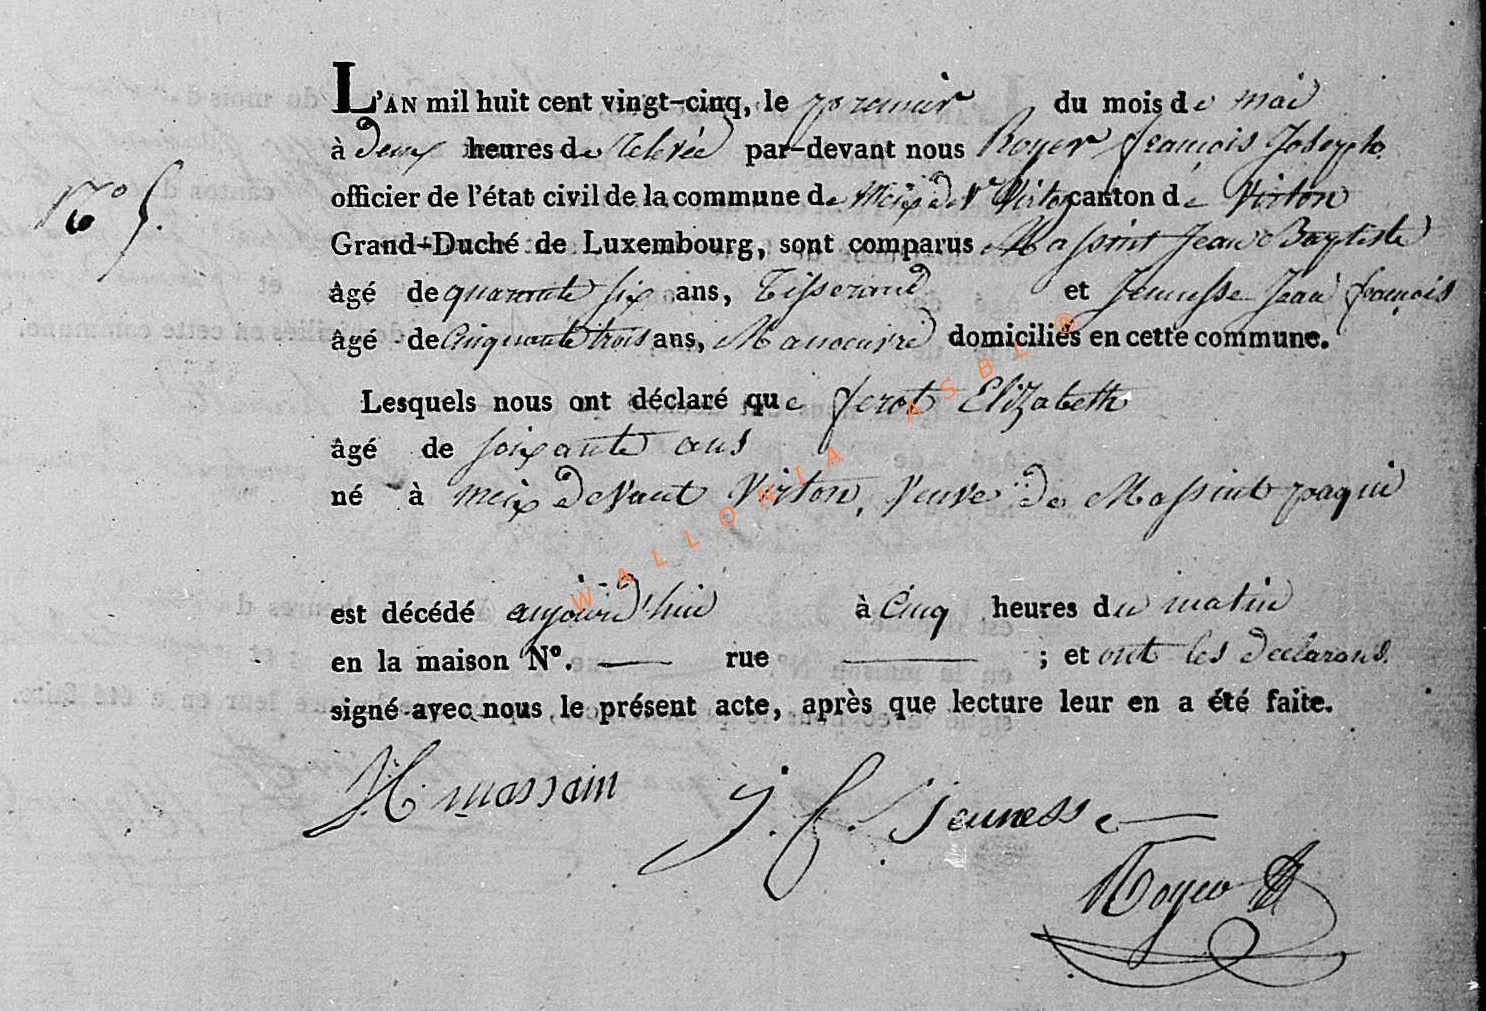 L'AN mil huit cent vingt-cinq, le premier du mois de mai
à deux heures de relevée par-devant nous Royer françois Joseph
officier de l'état civil de la commune de Meix devt Virton canton de Virton
Grand-Duché de Luxembourg, sont comparus Massint Jean Baptiste
N° 5.
âgé de quarante six ans, Tisserand et Jeunesse Jean françois
âgé de Cinquante trois ans, Manoeuvre domiciliés en cette commune.
Lesquels nous ont déclaré que ferot Elizabeth
âgé de soixante ans
né à meix devant Virton, veuve de Massint paquie
est décédé aujourd'hui à Cinq heures du matin
en la maison N°. — rue — ; et ont les declarans
signé avec nous le présent acte, après que lecture leur en a été faite.
massain
J. f. Jeunesse
Royer
WALLONIA ASBL ®